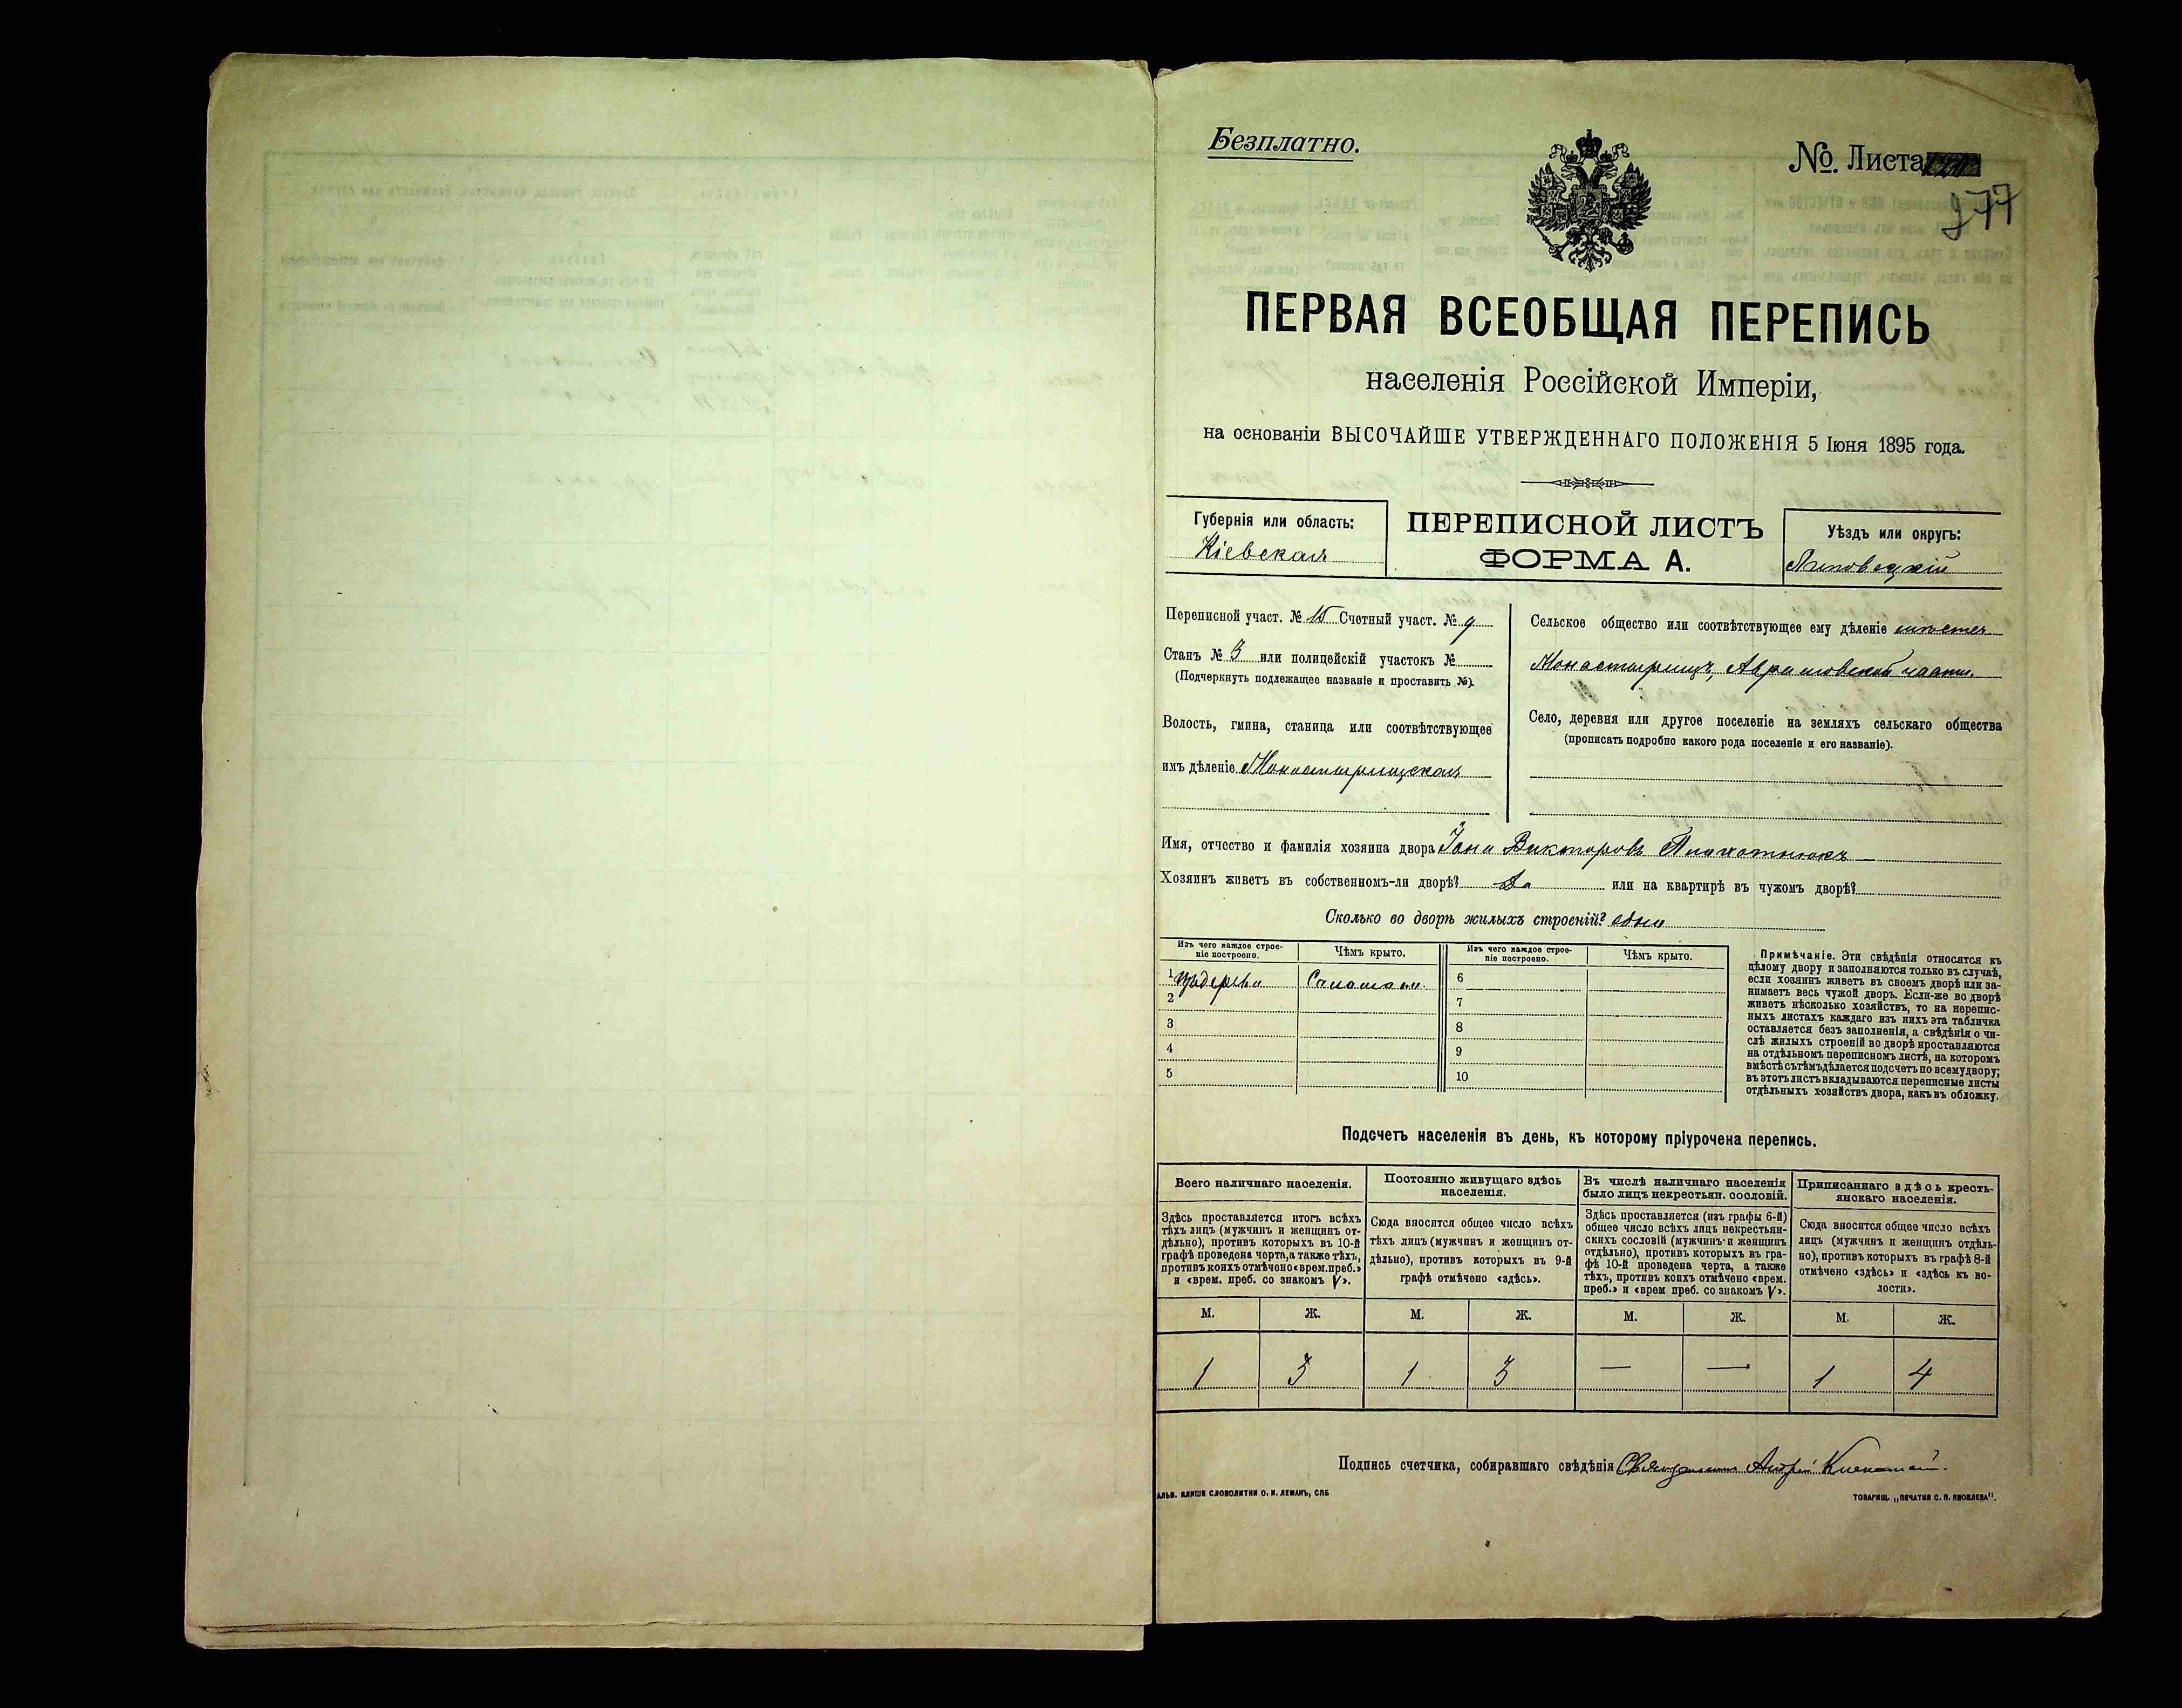 Безплатно.
№. Листа
277
ПЕРВАЯ ВСЕОБЩАЯ ПЕРЕПИСЬ
населенія Россійской Имперіи,
на основаніи ВЫСОЧАЙШЕ УТВЕРЖДЕННАГО ПОЛОЖЕНІЯ 5 Іюня 1895 года.
Губернія или область:
Кіевская
ПЕРЕПИСНОЙ ЛИСТЪ
ФОРМА А.
Уѣздъ или округъ:
Липовецкій
Переписной участ. № 15 Счетный участ. № 9
Станъ № 3 или полицейскій участокъ №
(Подчеркнуть подлежащее названіе и проставить №).
Волость, гмина, станица или соотвѣтствующее
имъ дѣленіе Монастырищская
Сельское общество или соотвѣтствующее ему дѣленіе
Монастырищъ, части.
Село, деревня или другое поселеніе на земляхъ сельскаго общества
(прописать подробно какого рода поселеніе и его названіе).
Имя, отчество и фамилія хозяина двора Іона Викторовъ Плахотнюкъ
Хозяинъ живетъ въ собственномъ-ли дворѣ? да или на квартирѣ въ чужомъ дворѣ?
Сколько во дворѣ жилыхъ строеній? одно
Изъ чего каждое строе-
ніе построено.
Чѣмъ крыто.
Изъ чего каждое строе-
ніе построено.
Чѣмъ крыто.
1 Соломою
2
3
4
5
6
7
8
9
10
Примѣчаніе. Эти свѣдѣнія относятся къ
цѣлому двору и заполняются только въ случаѣ,
если хозяинъ живетъ въ своемъ дворѣ или за-
нимаетъ весь чужой дворъ. Если-же во дворѣ
живетъ нѣсколько хозяйствъ, то на перепис-
ныхъ листахъ каждаго изъ нихъ эта табличка
оставляется безъ заполненія, а свѣдѣнія о чи-
слѣ жилыхъ строеній во дворѣ проставляются
на отдѣльномъ переписномъ листѣ, на которомъ
вмѣстѣ съ тѣмъ дѣлается подсчетъ по всему двору;
въ этотъ листъ вкладываются переписные листы
отдѣльныхъ хозяйствъ двора, какъ въ обложку.
Подсчетъ населенія въ день, къ которому пріурочена перепись.
Всего наличнаго населенія.
Здѣсь проставляется итогъ всѣхъ
тѣхъ лицъ (мужчинъ и женщинъ от-
дѣльно), противъ которыхъ въ 10-й
графѣ проведена черта, а также тѣхъ,
противъ коихъ отмѣчено «врем. преб.»
и «врем. преб. со знакомъ V».
Постоянно живущаго здѣсь
населенія.
Сюда вносится общее число всѣхъ
тѣхъ лицъ (мужчинъ и женщинъ от-
дѣльно), противъ которыхъ въ 9-й
графѣ отмѣчено «здѣсь».
Въ числѣ наличнаго населенія
было лицъ некрестьян. сословій.
Здѣсь проставляется (изъ графы 6-й)
общее число всѣхъ лицъ некрестьян-
скихъ сословій (мужчинъ и женщинъ
отдѣльно), противъ которыхъ въ гра-
фѣ 10-й проведена черта, а также
тѣхъ, противъ коихъ отмѣчено «врем.
преб.» и «врем преб. со знакомъ V».
Приписаннаго здѣсь кресть-
янскаго населенія.
Сюда вносится общее число всѣхъ
лицъ (мужчинъ и женщинъ отдѣль-
но), противъ которыхъ въ графѣ 8-й
отмѣчено «здѣсь» и «здѣсь къ во-
лости».
М. Ж. М. Ж. М. Ж. М. Ж.
1 3 1 3 — — 1 4
Подпись счетчика, собиравшаго свѣдѣнія Андрей
ТОВАРИЩ. „ПЕЧАТНЯ С. П. ЯКОВЛЕВА“.